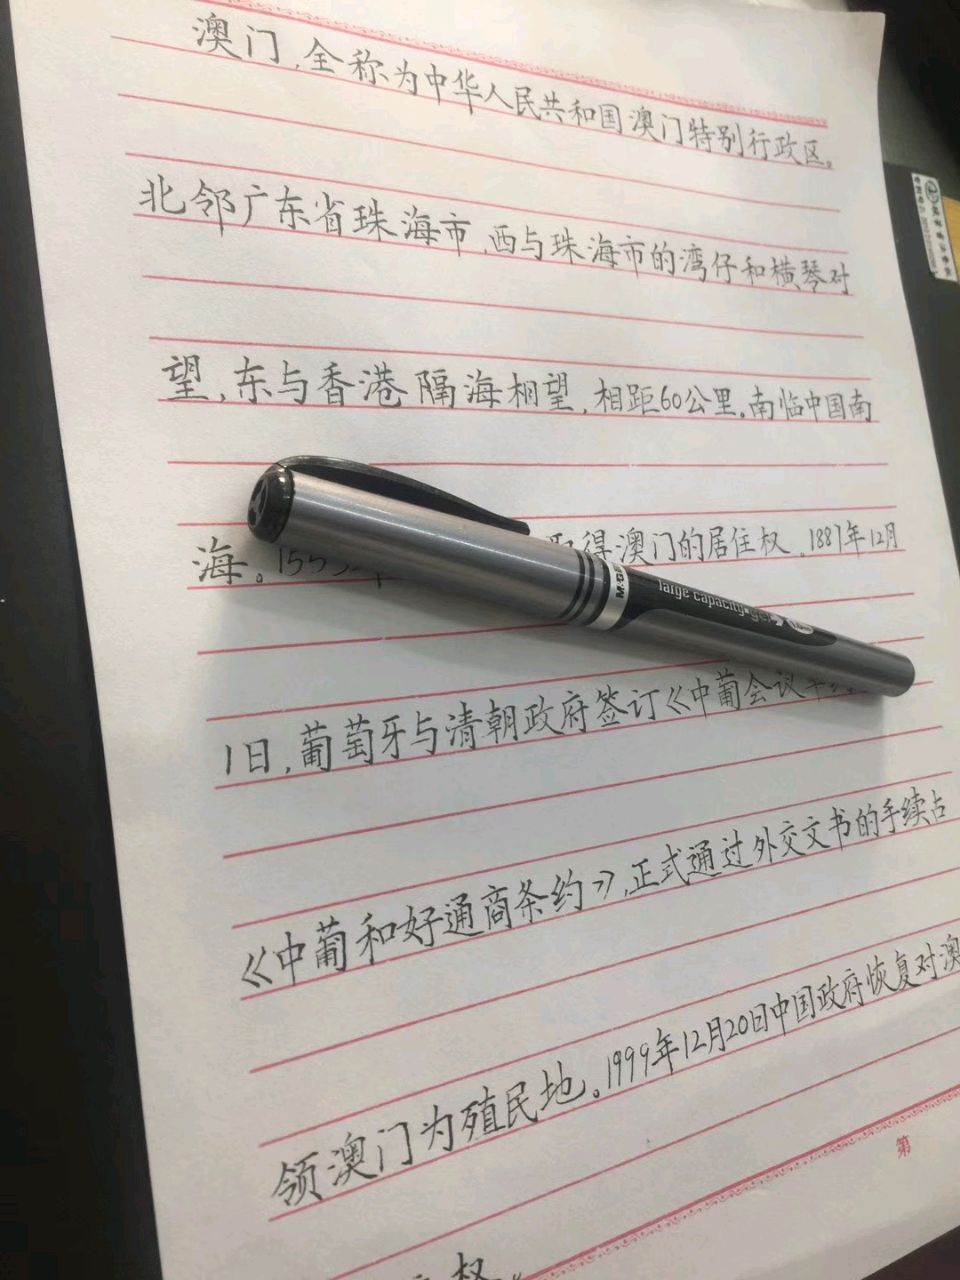 澳门,全称为中华人民共和国澳门特别行政区。
北邻广东省珠海市,西与珠海市的湾仔和横琴对
望,东与香港隔海相望,相距60公里。南临中国南
海。1553年 取得澳门的居住权。1887年12月
large capacity gel
1日,葡萄牙与清朝政府签订《中葡会议草约
《中葡和好通商条约》,正式通过外交文书的手续占
领澳门为殖民地。1999年12月20日中国政府恢复对澳
第
权。